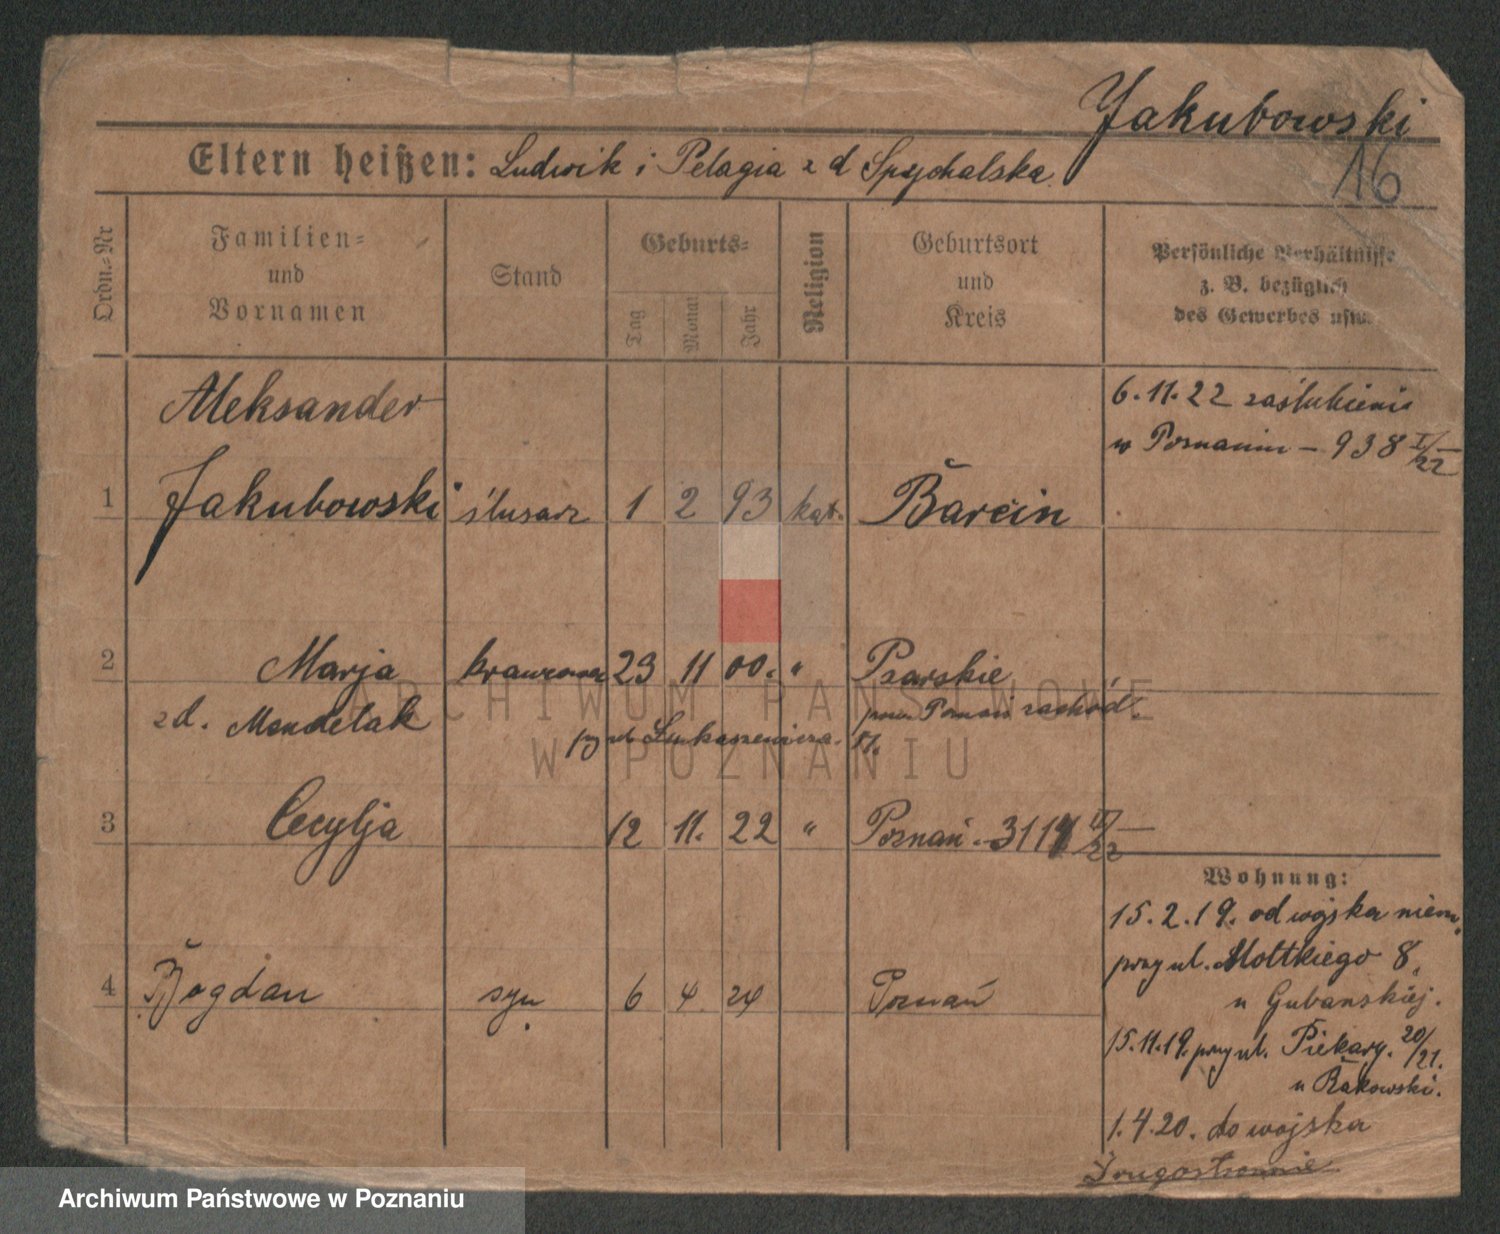 Jakubowski
16
Eltern heißen: Ludwik i Pelagia z d Spychalska.
Ordn.-Nr
Familien- und Vornamen
Stand
Geburts-
Tag
Monat
Jahr
Religion
Geburtsort und Kreis
Persönliche Verhältnisse
z. B. bezüglich
des Gewerbes usw.
Aleksander
6.11.22 zaślubieni
w Poznaniu – 938 I/22
1 Jakubowski ślusarz 1 2 93 kat. Barcin
2 Marja krawcowa 23 11 00. " Psarskie
zd. Mendelak pow. Poznań zachód.
przy ul. Łukaszewicza 17.
3 Cecylja 12 11. 22 " Poznań – 3114 II/22
Wohnung:
15.2.19. od wojska niem.
przy ul. Moltkiego 8,
u Gubanskiej.
4 Bogdan syn 6 4 24 Poznań
15.11.19. przy ul. Piekary. 20/21.
u Rakowski.
1.4.20. do wojska
Drugostronnie
ARCHIWUM PAŃSTWOWE
W POZNANIU
Archiwum Państwowe w Poznaniu